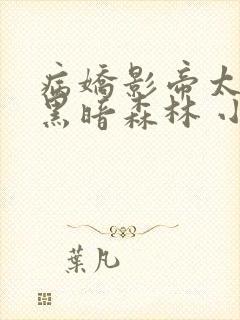 病嬌影帝太
黑暗森林 小
葉凡